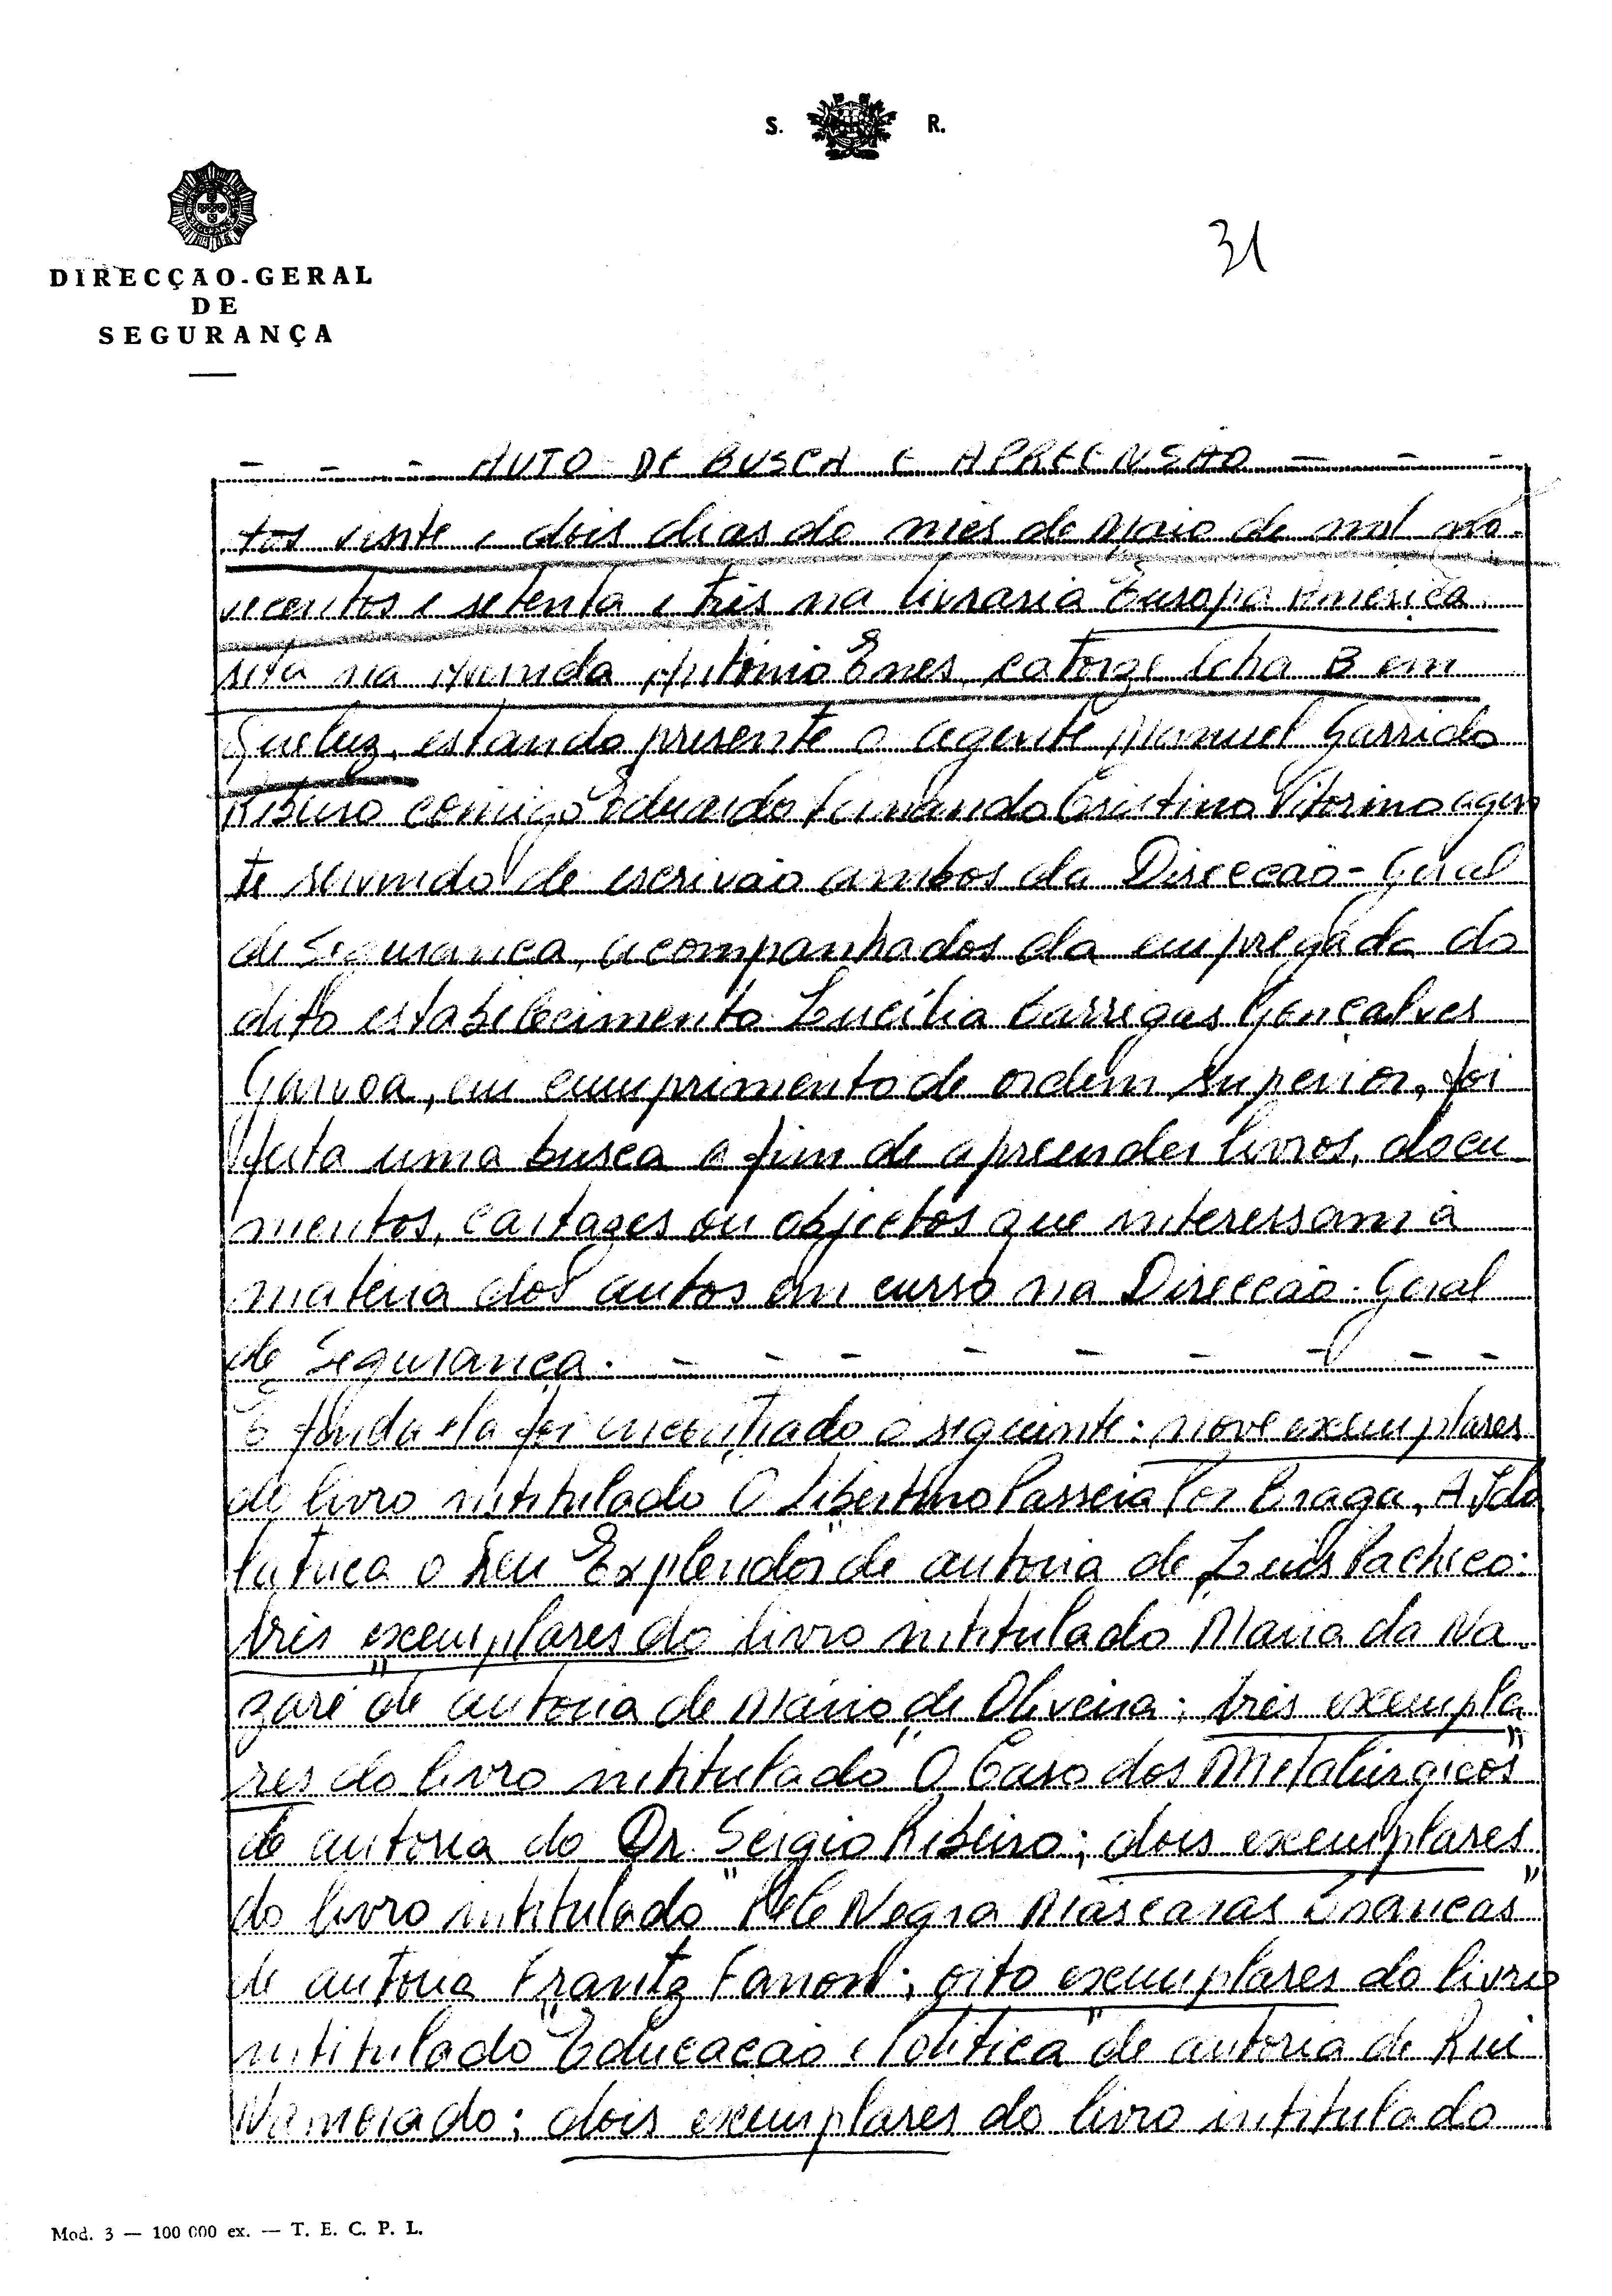 S. R.
31
DIRECÇÃO-GERAL
DE
SEGURANÇA
- - - AUTO DE BUSCA E APREENSÃO - - -
Aos vinte e dois dias do mês de Maio de mil no-
vecentos e setenta e três na livraria Europa América
sita na Avenida António Enes, catorze lcha B em
Queluz, estando presente o agente Manuel Garrido
Ribeiro comigo Eduardo Fernando Cristino Vitorino agen
te servindo de escrivão ambos da Direcção-Geral
de Segurança, acompanhados da empregada do
dito estabelecimento Lucília Garrigas Gonçalves
em cumprimento de ordem superior, foi
feita uma busca a fim de apreender livros, docu
mentos, cartazes ou objectos que interessam à
matéria dos autos em curso na Direcção-Geral
de Segurança. - - - - - - - - -
E finda ela foi encontrado o seguinte: nove exemplares
do livro intitulado O Libertino Passeia Por Braga, A Ido
latrica o Seu Explendor" de autoria de Luís Pacheco;
três exemplares do livro intitulado Maria da Na-
zaré" de autoria de Mário de Oliveira; três exempla
res do livro intitulado "O Caso dos Metalúrgicos"
de autoria do Dr. Sérgio Ribeiro; dois exemplares
do livro intitulado "Pele Negra Mascaras Brancas"
de autoria Frantz Fanon; oito exemplares do livro
intitulado "Educação e Politica" de autoria de Rui
Namorado; dois exemplares do livro intitulado
Mod. 3 — 100 000 ex. — T. E. C. P. L.